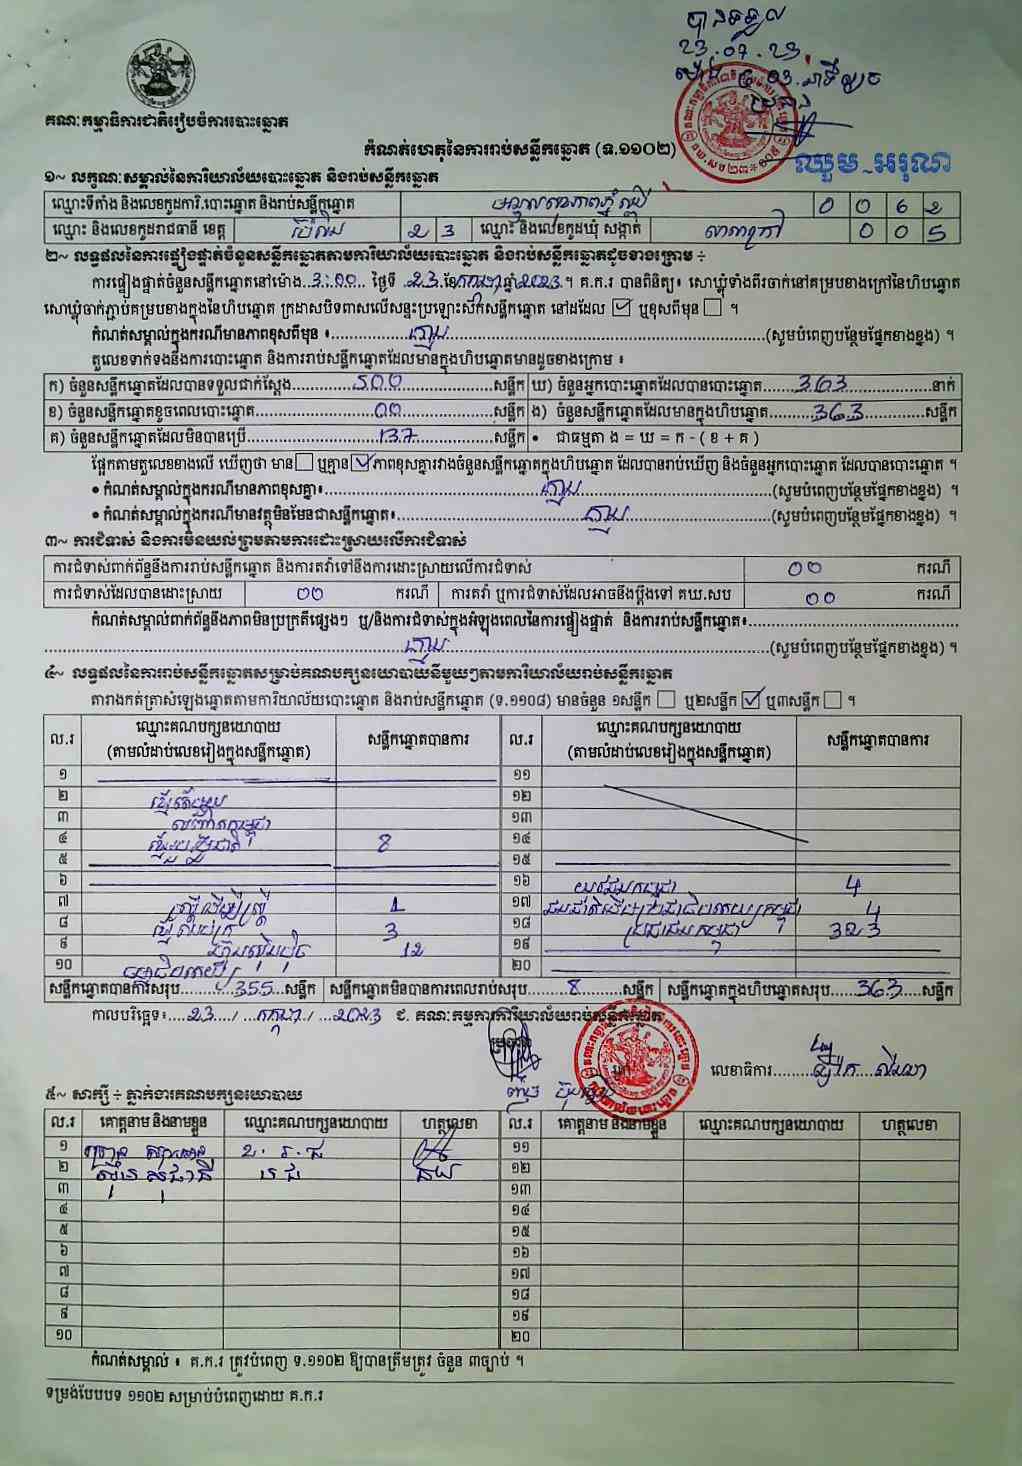 បានទទួល
23.07.23
គណៈកម្មាធិការជាតិរៀបចំការបោះឆ្នោត
កំណត់ហេតុនៃការរាប់សន្លឹកឆ្នោត (ទ.១១០២)
ឈួម-អរុណ
១~ លក្ខណៈសម្គាល់នៃការិយាល័យបោះឆ្នោត និងរាប់សន្លឹកឆ្នោត
ឈ្មោះទីតាំង និងលេខកូដការិ.បោះឆ្នោត និងរាប់សន្លឹកឆ្នោត 0 0 6 2
ឈ្មោះ និងលេខកូដរាជធានី ខេត្ត ប៉ៃលិន 2 3 ឈ្មោះ និងលេខកូដឃុំ សង្កាត់ 0 0 5
២~ លទ្ធផលនៃការផ្ទៀងផ្ទាត់ចំនួនសន្លឹកឆ្នោតតាមការិយាល័យបោះឆ្នោត និងរាប់សន្លឹកឆ្នោតដូចខាងក្រោម ÷
ការផ្ទៀងផ្ទាត់ចំនួនសន្លឹកឆ្នោតនៅម៉ោង 3:00 ថ្ងៃទី 23 ខែ កក្កដា ឆ្នាំ 2023 ។ គ.ក.រ បានពិនិត្យ៖ សោឃ្លុំទាំងពីរចាក់នៅគម្របខាងក្រៅនៃហិបឆ្នោត
សោឃ្លុំចាក់ភ្ជាប់គម្របខាងក្នុងនៃហិបឆ្នោត ក្រដាសបិទពាសលើសន្ទះប្រឡោះស៊ីកសន្លឹកឆ្នោត នៅដដែល ☑ ឬខុសពីមុន ☐ ។
កំណត់សម្គាល់ក្នុងករណីមានភាពខុសពីមុន ៖ គ្មាន (សូមបំពេញបន្ថែមផ្នែកខាងខ្នង) ។
តួលេខទាក់ទងនឹងការបោះឆ្នោត និងការរាប់សន្លឹកឆ្នោតដែលមានក្នុងហិបឆ្នោតមានដូចខាងក្រោម ៖
ក) ចំនួនសន្លឹកឆ្នោតដែលបានទទួលជាក់ស្តែង 500 សន្លឹក ឃ) ចំនួនអ្នកបោះឆ្នោតដែលបានបោះឆ្នោត 363 នាក់
ខ) ចំនួនសន្លឹកឆ្នោតខូចពេលបោះឆ្នោត 00 សន្លឹក ង) ចំនួនសន្លឹកឆ្នោតដែលមានក្នុងហិបឆ្នោត 363 សន្លឹក
គ) ចំនួនសន្លឹកឆ្នោតដែលមិនបានប្រើ 137 សន្លឹក • ជាធម្មតា ង = ឃ = ក - ( ខ + គ )
ផ្អែកតាមតួលេខខាងលើ ឃើញថា មាន ☐ ឬគ្មាន ☑ ភាពខុសគ្នារវាងចំនួនសន្លឹកឆ្នោតក្នុងហិបឆ្នោត ដែលបានរាប់ឃើញ និងចំនួនអ្នកបោះឆ្នោត ដែលបានបោះឆ្នោត ។
• កំណត់សម្គាល់ក្នុងករណីមានភាពខុសគ្នា៖ គ្មាន (សូមបំពេញបន្ថែមផ្នែកខាងខ្នង) ។
• កំណត់សម្គាល់ក្នុងករណីមានវត្ថុមិនមែនជាសន្លឹកឆ្នោត៖ គ្មាន (សូមបំពេញបន្ថែមផ្នែកខាងខ្នង) ។
៣~ ការជំទាស់ និងការមិនយល់ព្រមតាមការដោះស្រាយលើការជំទាស់
ការជំទាស់ពាក់ព័ន្ធនឹងការរាប់សន្លឹកឆ្នោត និងការតវ៉ាទៅនឹងការដោះស្រាយលើការជំទាស់ 00 ករណី
ការជំទាស់ដែលបានដោះស្រាយ 00 ករណី ការតវ៉ា ឬការជំទាស់ដែលអាចនឹងប្តឹងទៅ គឃ.សប 00 ករណី
កំណត់សម្គាល់ពាក់ព័ន្ធនឹងភាពមិនប្រក្រតីផ្សេងៗ ឬ/និងការជំទាស់ក្នុងអំឡុងពេលនៃការផ្ទៀងផ្ទាត់ និងការរាប់សន្លឹកឆ្នោត៖
គ្មាន (សូមបំពេញបន្ថែមផ្នែកខាងខ្នង) ។
៤~ លទ្ធផលនៃការរាប់សន្លឹកឆ្នោតសម្រាប់គណបក្សនយោបាយនីមួយៗតាមការិយាល័យរាប់សន្លឹកឆ្នោត
តារាងកត់ត្រាសំឡេងឆ្នោតតាមការិយាល័យបោះឆ្នោត និងរាប់សន្លឹកឆ្នោត (ទ.១១០៨) មានចំនួន ១សន្លឹក ☐ ឬ២សន្លឹក ☑ ឬ៣សន្លឹក ☐ ។
ល.រ ឈ្មោះគណបក្សនយោបាយ (តាមលំដាប់លេខរៀងក្នុងសន្លឹកឆ្នោត) សន្លឹកឆ្នោតបានការ ល.រ ឈ្មោះគណបក្សនយោបាយ (តាមលំដាប់លេខរៀងក្នុងសន្លឹកឆ្នោត) សន្លឹកឆ្នោតបានការ
១ ១១
២ ១២
៣ ១៣
៤ 8 ១៤
៥ ១៥
៦ ១៦ យុវជនកម្ពុជា 4
៧ 1 ១៧ 4
៨ 3 ១៨ ប្រជាជនកម្ពុជា 323
៩ ហ្វ៊ុនស៊ិនប៉ិច 12 ១៩
១០ ២០
សន្លឹកឆ្នោតបានការសរុប 355 សន្លឹក សន្លឹកឆ្នោតមិនបានការពេលរាប់សរុប 8 សន្លឹក សន្លឹកឆ្នោតក្នុងហិបឆ្នោតសរុប 363 សន្លឹក
កាលបរិច្ឆេទ៖ 23 / កក្កដា / 2023 ជ. គណៈកម្មការការិយាល័យរាប់សន្លឹកឆ្នោត
ប្រធាន
លេខាធិការ
៥~ សាក្សី ÷ ភ្នាក់ងារគណបក្សនយោបាយ
ល.រ គោត្តនាម និងនាមខ្លួន ឈ្មោះគណបក្សនយោបាយ ហត្ថលេខា ល.រ គោត្តនាម និងនាមខ្លួន ឈ្មោះគណបក្សនយោបាយ ហត្ថលេខា
១ ១១
២ ១២
៣ ១៣
៤ ១៤
៥ ១៥
៦ ១៦
៧ ១៧
៨ ១៨
៩ ១៩
១០ ២០
កំណត់សម្គាល់ ៖ គ.ក.រ ត្រូវបំពេញ ទ.១១០២ ឱ្យបានត្រឹមត្រូវ ចំនួន ៣ច្បាប់ ។
ទម្រង់បែបបទ ១១០២ សម្រាប់បំពេញដោយ គ.ក.រ